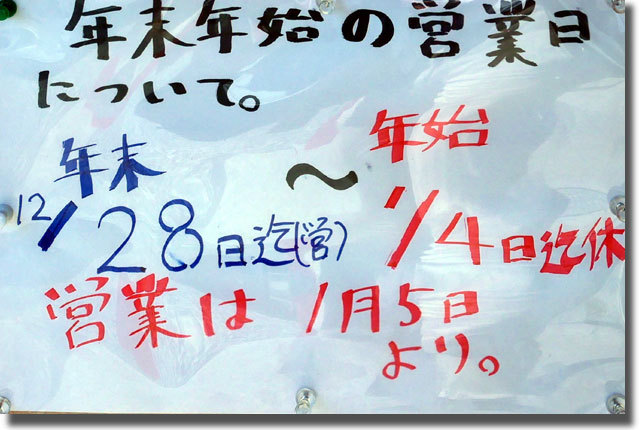 年末年始の営業日
について。
年末 ～ 年始
12/28日迄(営) 1/4日迄休
営業は1月5日
より。